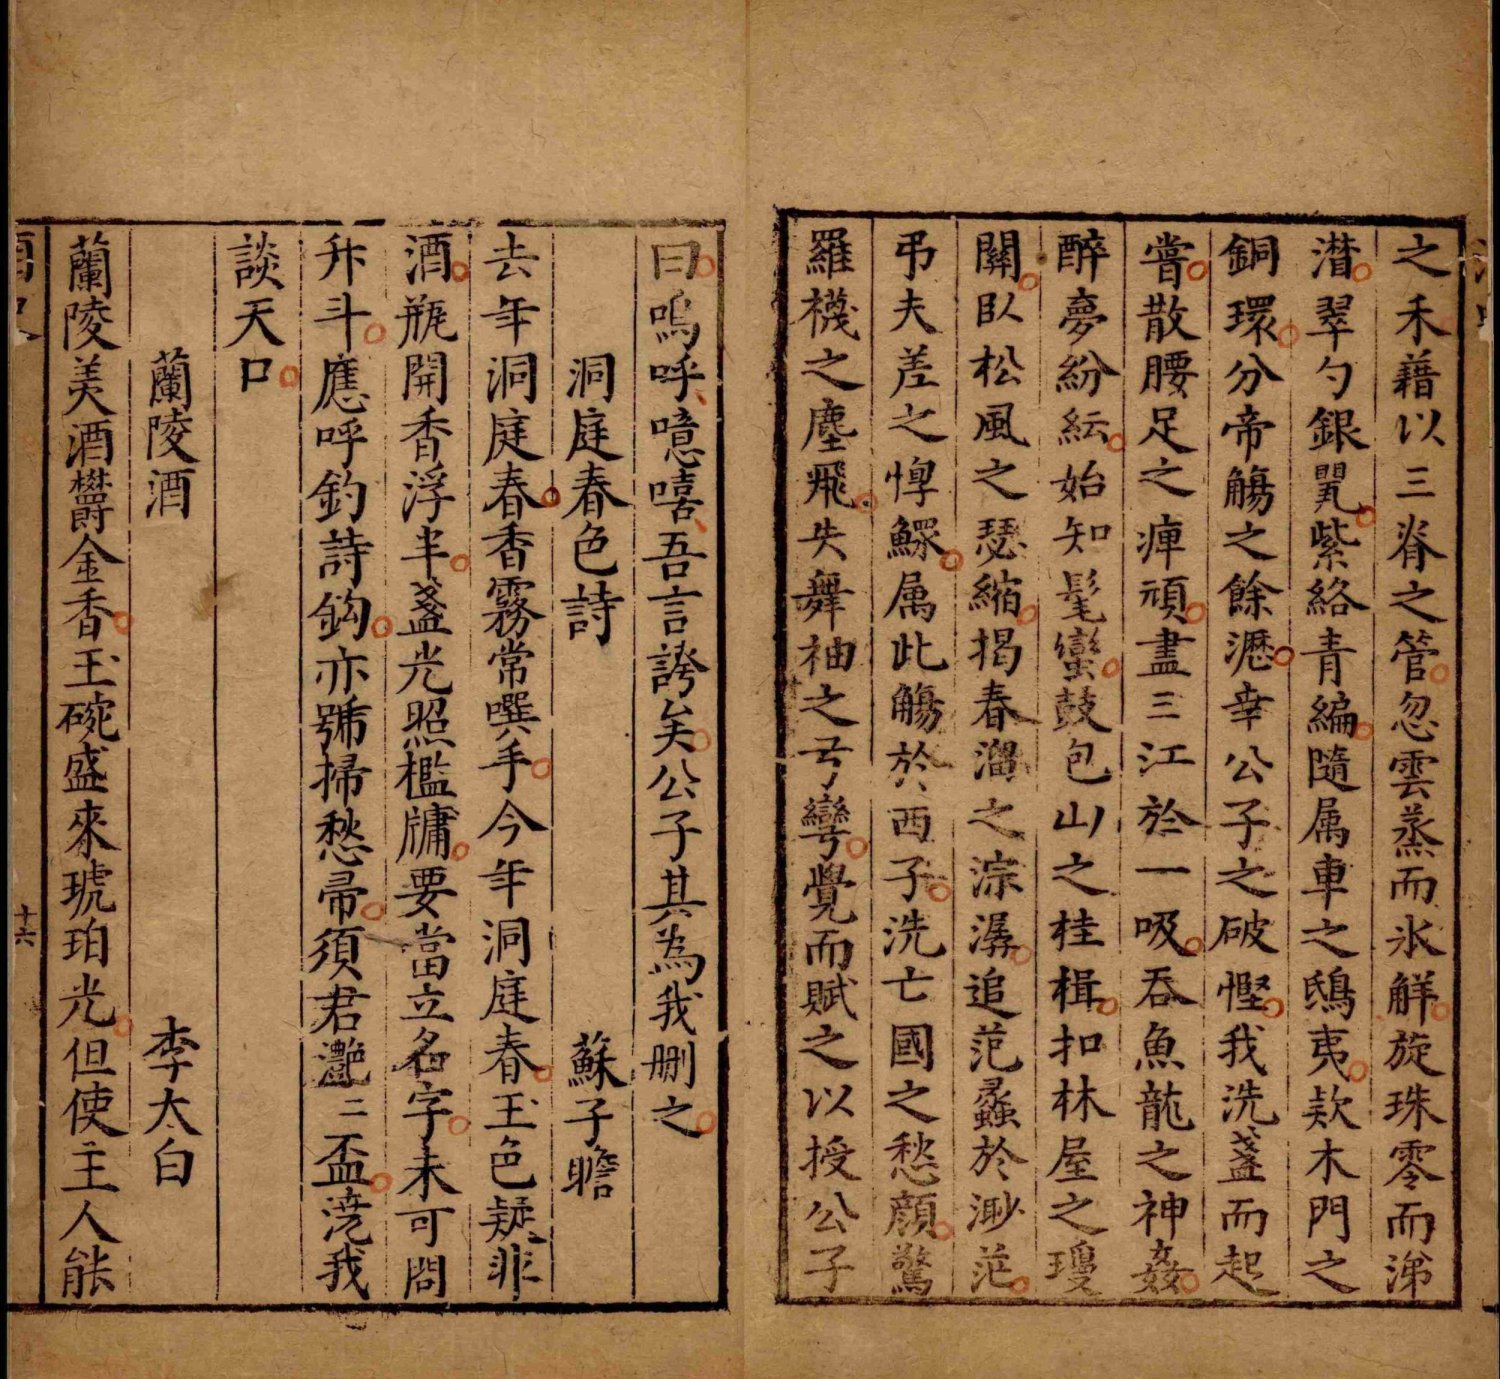 之禾藉以三脊之管忽雲蒸而氷觧旋珠零而涕
潸翠勺銀罌紫絡青編隨属車之鴟夷欵木門之
銅環分帝觴之餘瀝幸公子之破慳我洗盞而起
嘗散腰足之痺頑盡三江於一吸吞魚龍之神姦
醉夢紛紜始知髦蠻鼓包山之桂楫扣林屋之瓊
關臥松風之瑟縮掲春溜之淙潺追范蠡於渺茫
弔夫差之惸鰥属此觴於西子洗亡國之愁顔驚
羅襪之塵飛失舞袖之弓彎覺而賦之以授公子
曰嗚呼噫嘻吾言誇矣公子其為我刪之
洞庭春色詩 蘇子瞻
去年洞庭春香霧常噀手今年洞庭春玉色疑非
酒瓶開香浮半盞光照檻牖要當立名字未可問
升斗應呼釣詩鈎亦號掃愁帚須君灔二盃澆我
談天口
蘭陵酒 李太白
蘭陵美酒欝金香玉碗盛來琥珀光但使主人能
十六